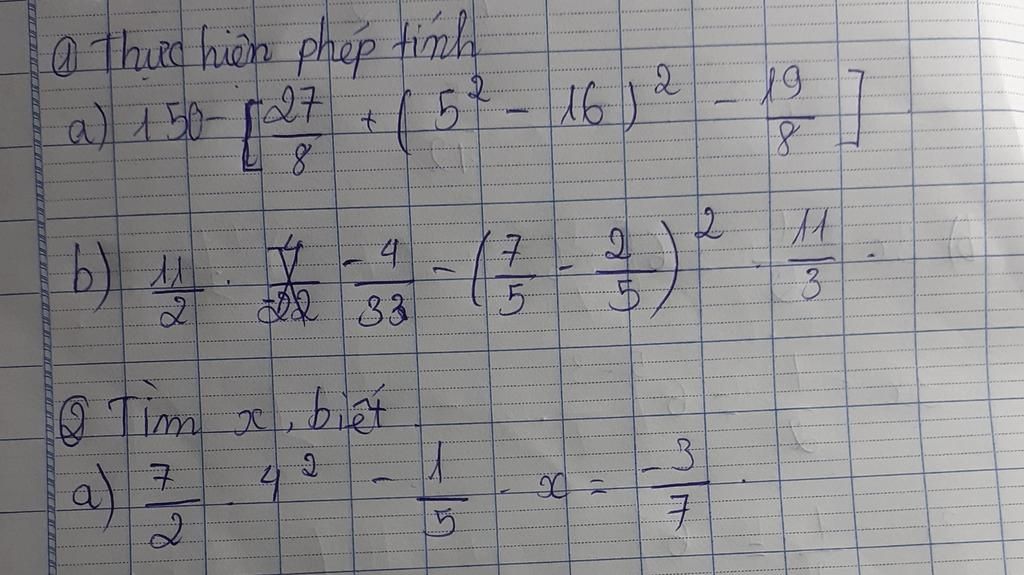 ① Thực hiện phép tính
a) 150 - [27/8 + (5² - 16)² - 19/8]
b) 11/2 . -4/33 - (7/5 - 2/5)² . 11/3 .
② Tìm x, biết
a) 7/2 . 4² - 1/5 . x = -3/7 .